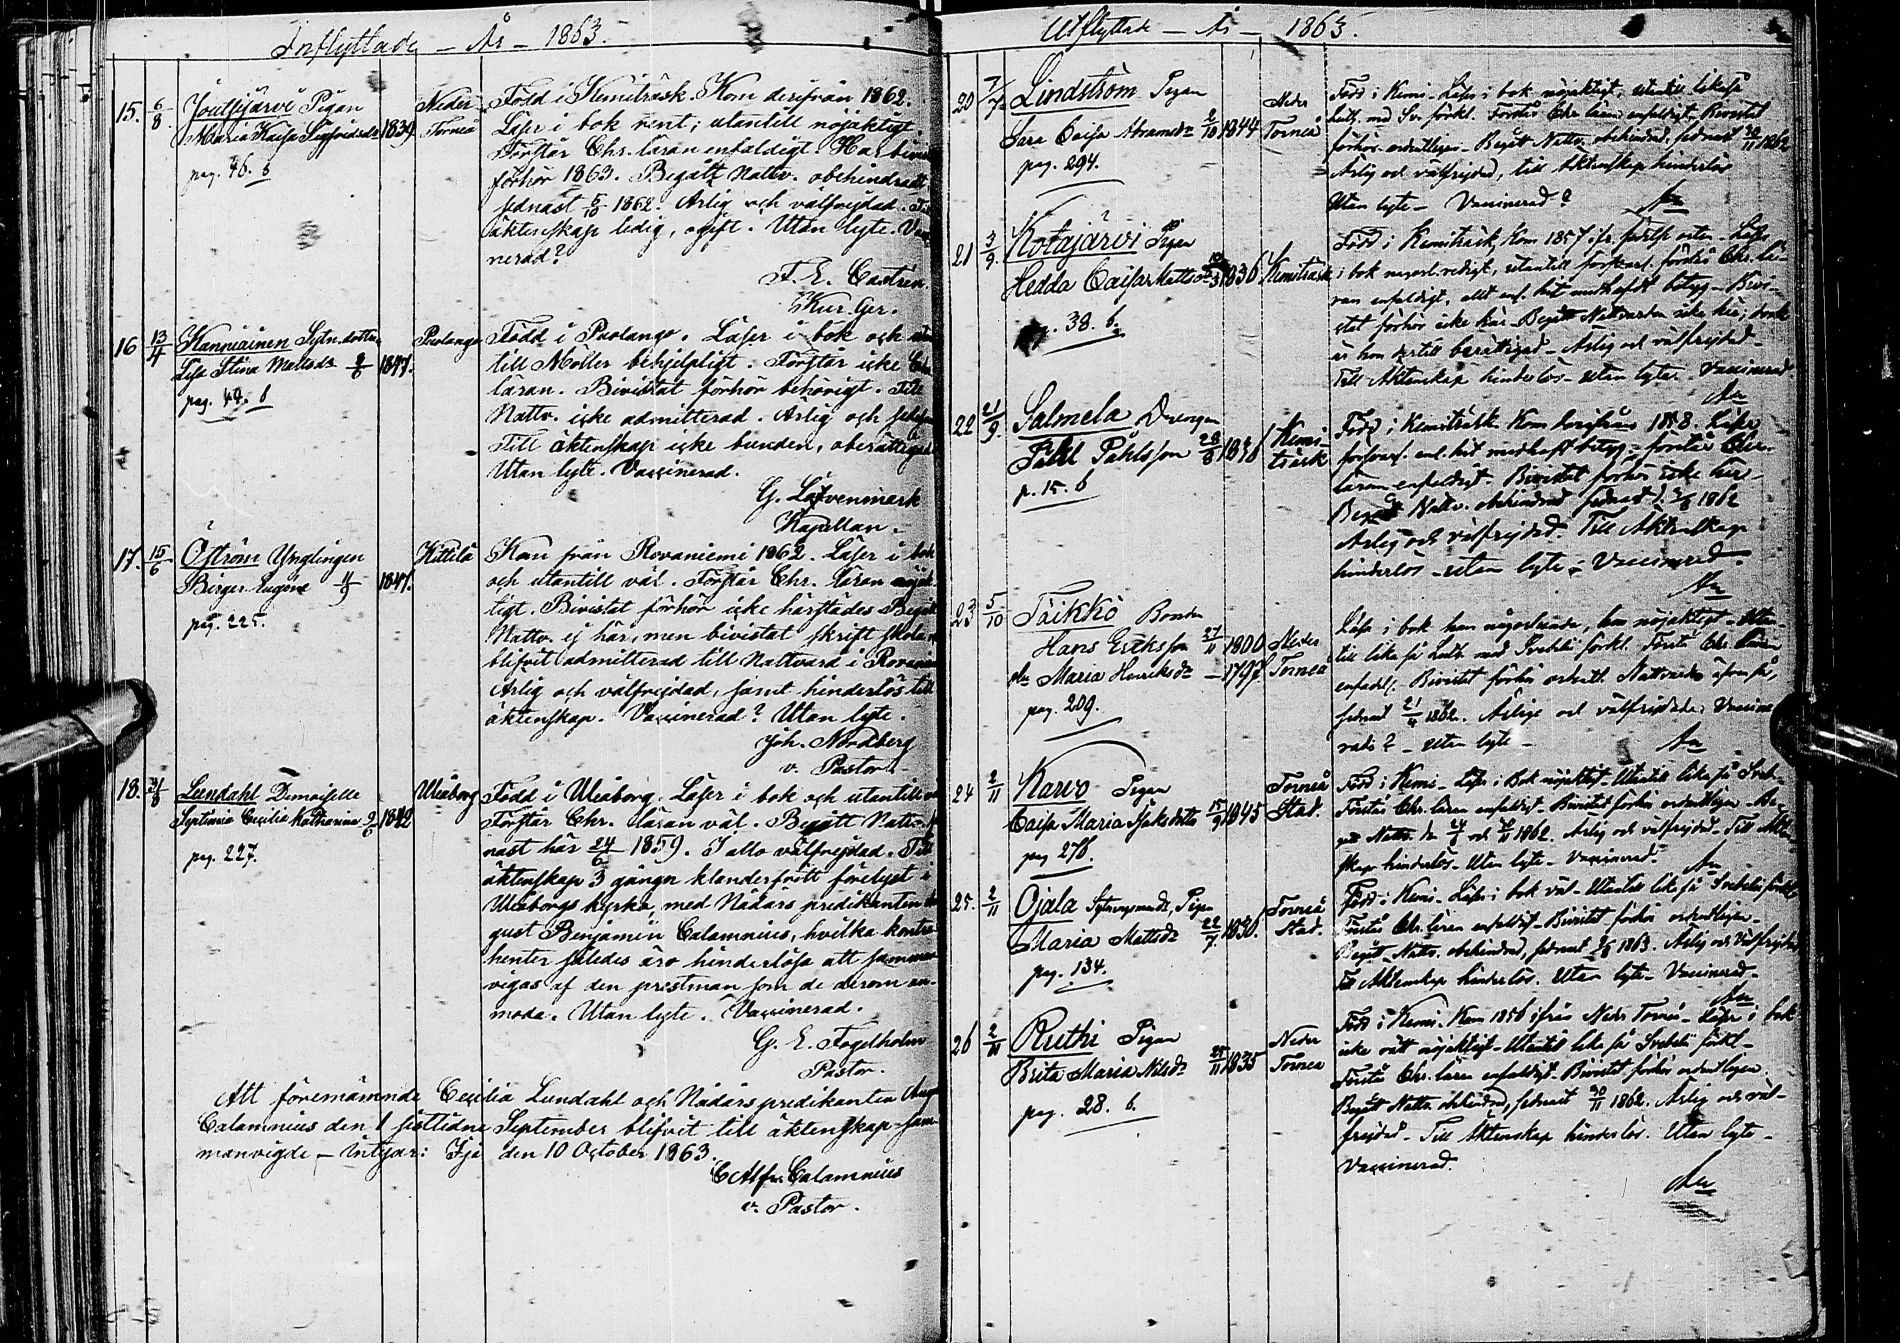 Inflyttade – År – 1863.
15. 6/8 Joutsijärvi Pigan
Maria Kaisa Sigfridsdr 1839
pag. 46. b
Neder
Torneå
Född i Kemiträsk. Kom derifrån 1862.
Läser i bok rent; utantill nöjaktigt.
Förstår Chr. läran enfaldigt. Har bivist
förhör 1863. Begått Nattv. obehindradt
sednast 5/10 1862. Ärlig och välfrejdad. Till
äktenskap ledig, ogift. Utan lyte. Vac
nerad?
F. E. Castrén.
Kur. Ger.
16 13/4 Hanniainen Sytn. dottren
Lisa Stina Mattsdr 2/6 1847.
pag. 44. b
Puolango
Född i Puolango. Läser i bok och utan
till Möller behjelpligt. Förstår icke Chr.
läran. Bivistat förhör behörigt. Till
Nattv. icke admitterad. Ärlig och
Till äktenskap icke bunden, oberättigad
Utan lyte. Vaccinerad.
G. Löfvenmark
Kapellan.
17. 15/6 Öström Ynglingen
Birger Eugène 4/9 1847.
pag. 225.
Kittilä
Kom från Rovaniemi 1862. Läser i bok
och utantill väl. Förstår Chr. läran nöjak
tigt. Bivistat förhör icke härstädes Begått
Nattv. ej här, men bivistat skriftskola o
blifvit admitterad till Nattvard i Rovanie
Ärlig och välfrejdad, samt hinderlös till
äktenskap. Vaccinerad? Utan lyte.
Joh. Nordberg
v. Pastor.
18. 31/8 Lundahl Demoiselle
Septimia Cecilia Katharina 2/6 1842
pag. 227.
Uleåborg
Född i Uleåborg. Läser i bok och utantill
Förstår Chr. läran väl. Begått Nattv.
nast här 24/6 1859. I allo välfrejdad. Till
äktenskap 3 gånger klanderfritt förelyst i
Uleåborgs kyrka med Nådårs predikanten Au
gust Benjamin Calamnius, hvilka kontra
henter således äro hinderlösa att samman
vigas af den prestman som de derom an-
moda. Utan lyte. Vaccinerad.
G. E. Fogelholm
Pastor.
Att förenämnde Cecilia Lundahl och Nådårs predikanten Aug
Calamnius den 1 sistlidne September blifvit till äktenskap sam-
manvigde – intygar: Ijo den 10 October 1863.
C Alfr. Calamnius
v. Pastor.
Utflyttade – År – 1863.
20 7/7 Lindström Pigan
Sara Caisa Abramsdr 2/10 1844
pag. 294.
Neder
Torneå
Född i Kemi – Läser i bok nöjaktigt, utantill likaså
Luth. med Sv. förkl. Förstår Chr. läran enfaldigt – Bivistat
förhör ordentligen – Begått Nattv. obehindrad, sednast 30/11 1862
Ärlig och välfrejdad, till Äktenskap hinderlös
Utan lyte – Vaccinerad?
21 3/9 Kotajärvi Pigan
Hedda Caisa Mattsdr 1836.
38. b.
Kemiträsk
Född i Kemiträsk, kom 1857
ran enfaldigt, allt enl. hit medhafdt betyg – Bivi-
stat förhör icke här – Begått Nattvarden icke här, dock
är hon dertill berättigad – Ärlig och välfrejdad –
Till Äktenskap hinderlös – Utan lyte – Vaccinerad.
22 21/9 Salmela Drengen
Påhl Påhlsson 28/8 1838
p. 15. b
Kemi-
träsk
Född i Kemiträsk Kom 1858. Läser
försvarl. enl. hit medhaft betyg – förstår Chr.
läran enfaldigt. Bivistat förhör icke här –
Begått Nattv. obehindrad sednast 1862
Ärlig och välfrejdad. Till Äktenskap
hinderlös – utan lyte – Vaccinerad.
23 5/10 Toikko Bonden
Hans Eriksson 27/11 1800
Maria Henriksdr – 1797
pag. 209.
Neder
Torneå
Läser i bok han någorlunda, hon nöjaktigt – Utan-
till lika så Luth. med Svebelii förkl. Förstå Chr. läran
enfaldt. Bivistat förhör ordentl. Nattvarden
sednast 1862. Ärliga och välfrejdade. Vaccine-
rade? – Utan lyte –
24 2/11 Karvo Pigan
Caisa Maria Isaksdotter 15/9 1845
pag 278.
Torneå
Stad.
Född i Kemi – Läser i Bok nöjaktigt. Utantill lika så Sveb.
Förstår Chr. läran enfaldigt – Bivistat förhör ordentligen – Be-
gått Nattv. 1862. Ärlig och välfrejdad – Till Äkten
skap hinderlös – Utan lyte – Vaccinerad.
25. 2/11 Ojala Pigan
Maria Mattsdr 22/7 1830.
pag. 134.
Torneå
Stad.
Född i Kemi – Läser i bok väl – Utantill lika så Svebelii förkl.
Förstår Chr. läran enfaldigt – Bivistat förhör ordentligen –
Begått Nattv. obehindrad, sednast 1863. Ärlig och välfrejdad,
Till Äktenskap hinderlös. Utan lyte – Vaccinerad –
26 2/11 Ruthi Pigan
Brita Maria Nilsdr 25/11 1835
pag. 28. b.
Neder
Torneå
Född i Kemi. Kom 1856 ifrån Neder Torneå – Läser i bok
icke rätt nöjaktigt – Utantill lika så Svebelii förkl –
Förstår Chr. läran enfaldigt. Bivistat förhör ordentligen.
Begått Nattv. obehindrad, sednast 30/11 1862. Ärlig och väl-
frejdad – Till Äktenskap hinderlös. Utan lyte –
Vaccinerad.